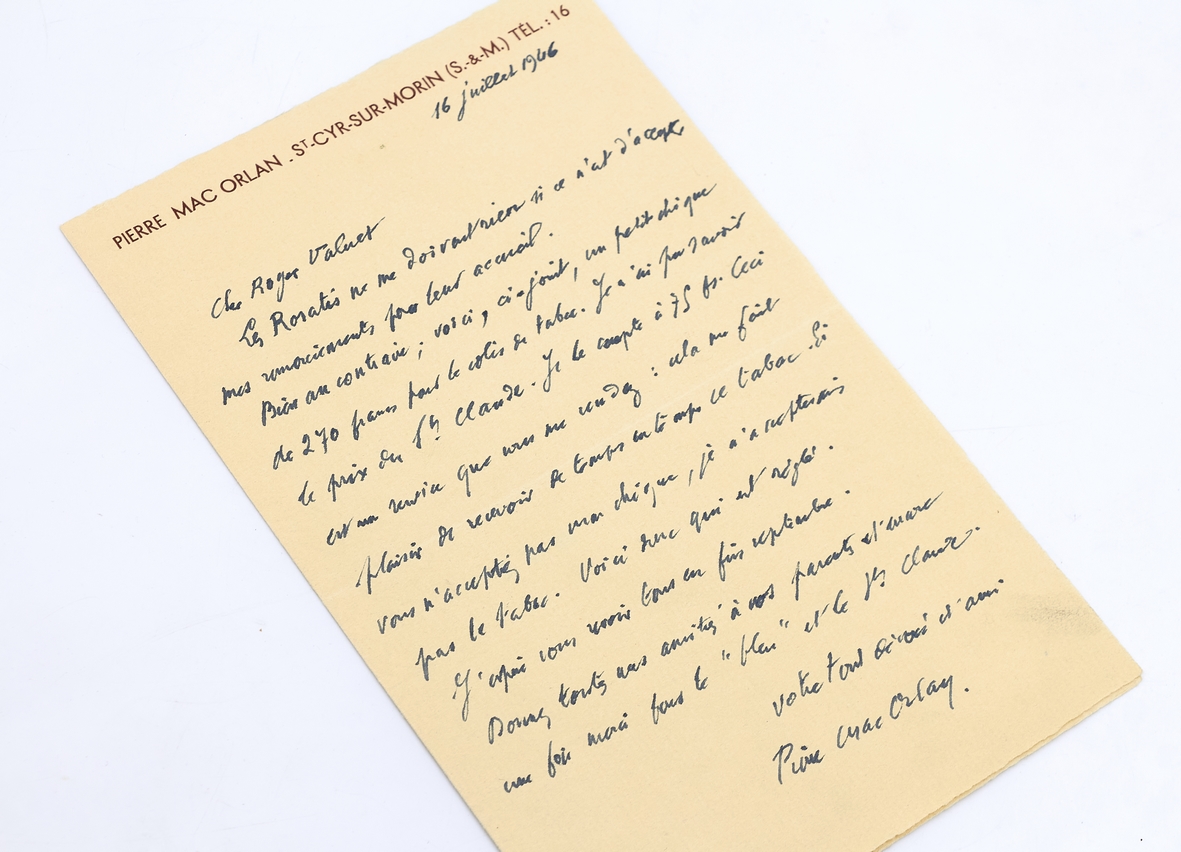 PIERRE MAC ORLAN . ST-CYR-SUR-MORIN (S.-&-M.) TÉL. : 16
16 juillet 1946
Cher Roger Valuet
Les Rosatis ne me doivent rien si ce n'est d'accepter
mes remerciements pour leur accueil.
Bien au contraire ; voici, ci-joint, un petit chèque
de 270 francs pour le colis de tabac. Je n'ai pu savoir
le prix du St Claude. Je le compte à 75 fs. Ceci
est un service que vous me rendez : cela me fait
plaisir de recevoir de temps en temps ce tabac. Si
vous n'acceptez pas mon chèque, je n'accepterais
pas le tabac. Voici donc qui est réglé.
J'espère vous revoir tous en fin septembre.
Donnez toutes nos amitiés à vos parents et encore
une fois merci pour le "bleu" et le St Claude.
votre tout dévoué et ami
Pierre Mac Orlan.